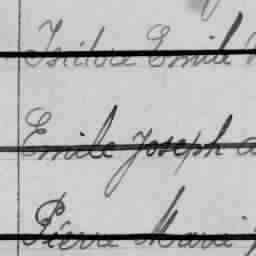 Isidore Emile
Emile Joseph
Pierre Marie